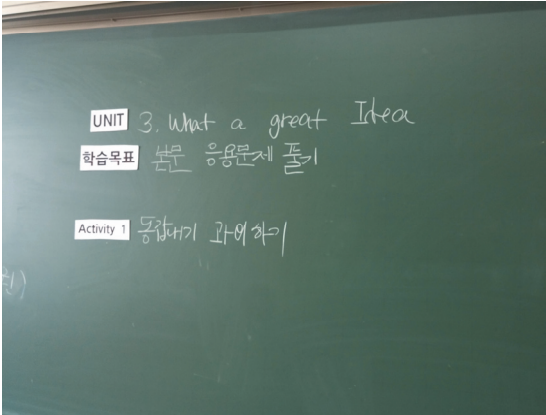 UNIT 3. What a great Idea
학습목표 본문 응용문제 풀기
Activity 1 통합내기 과이하기